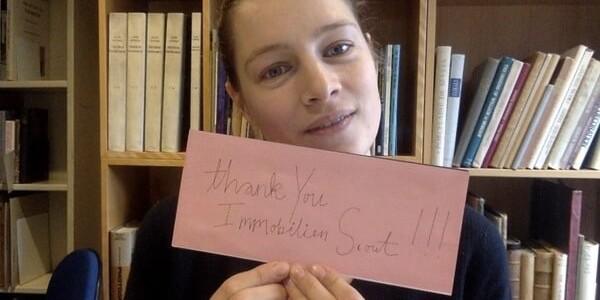 thank You
Immobilien Scout !!!